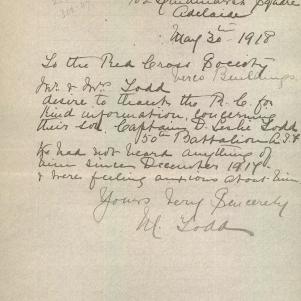 102 Hindmarsh Square
Adelaide
May 30 - 1918
To the Red Cross Society
Verco Buildings
Mr. & Mrs. Todd
desire to thank the R. C. for
kind information, concerning
their son, Captain D. Leslie Todd
50th Battalion A.I.F
We had not heard anything of
him since December 1917
& were feeling anxious about him
Yours Very Sincerely
M. Todd